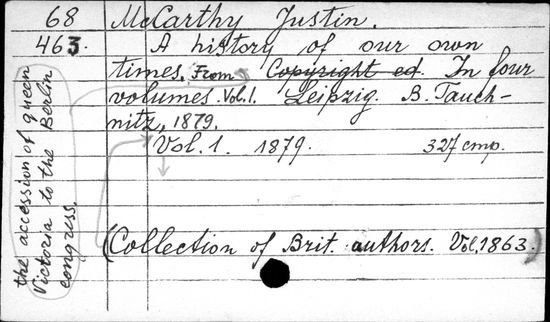 68 McCarthy Justin.
463. A history of our own
times. From Copyright ed. In four
volumes. Vol.1. Leipzig. B. Tauch-
nitz, 1879.
Vol. 1. 1879. 327 стр.
(Collection of Brit. authors. Vol. 1863.)
the accession of queen
Victoria to the Berlin
congress.